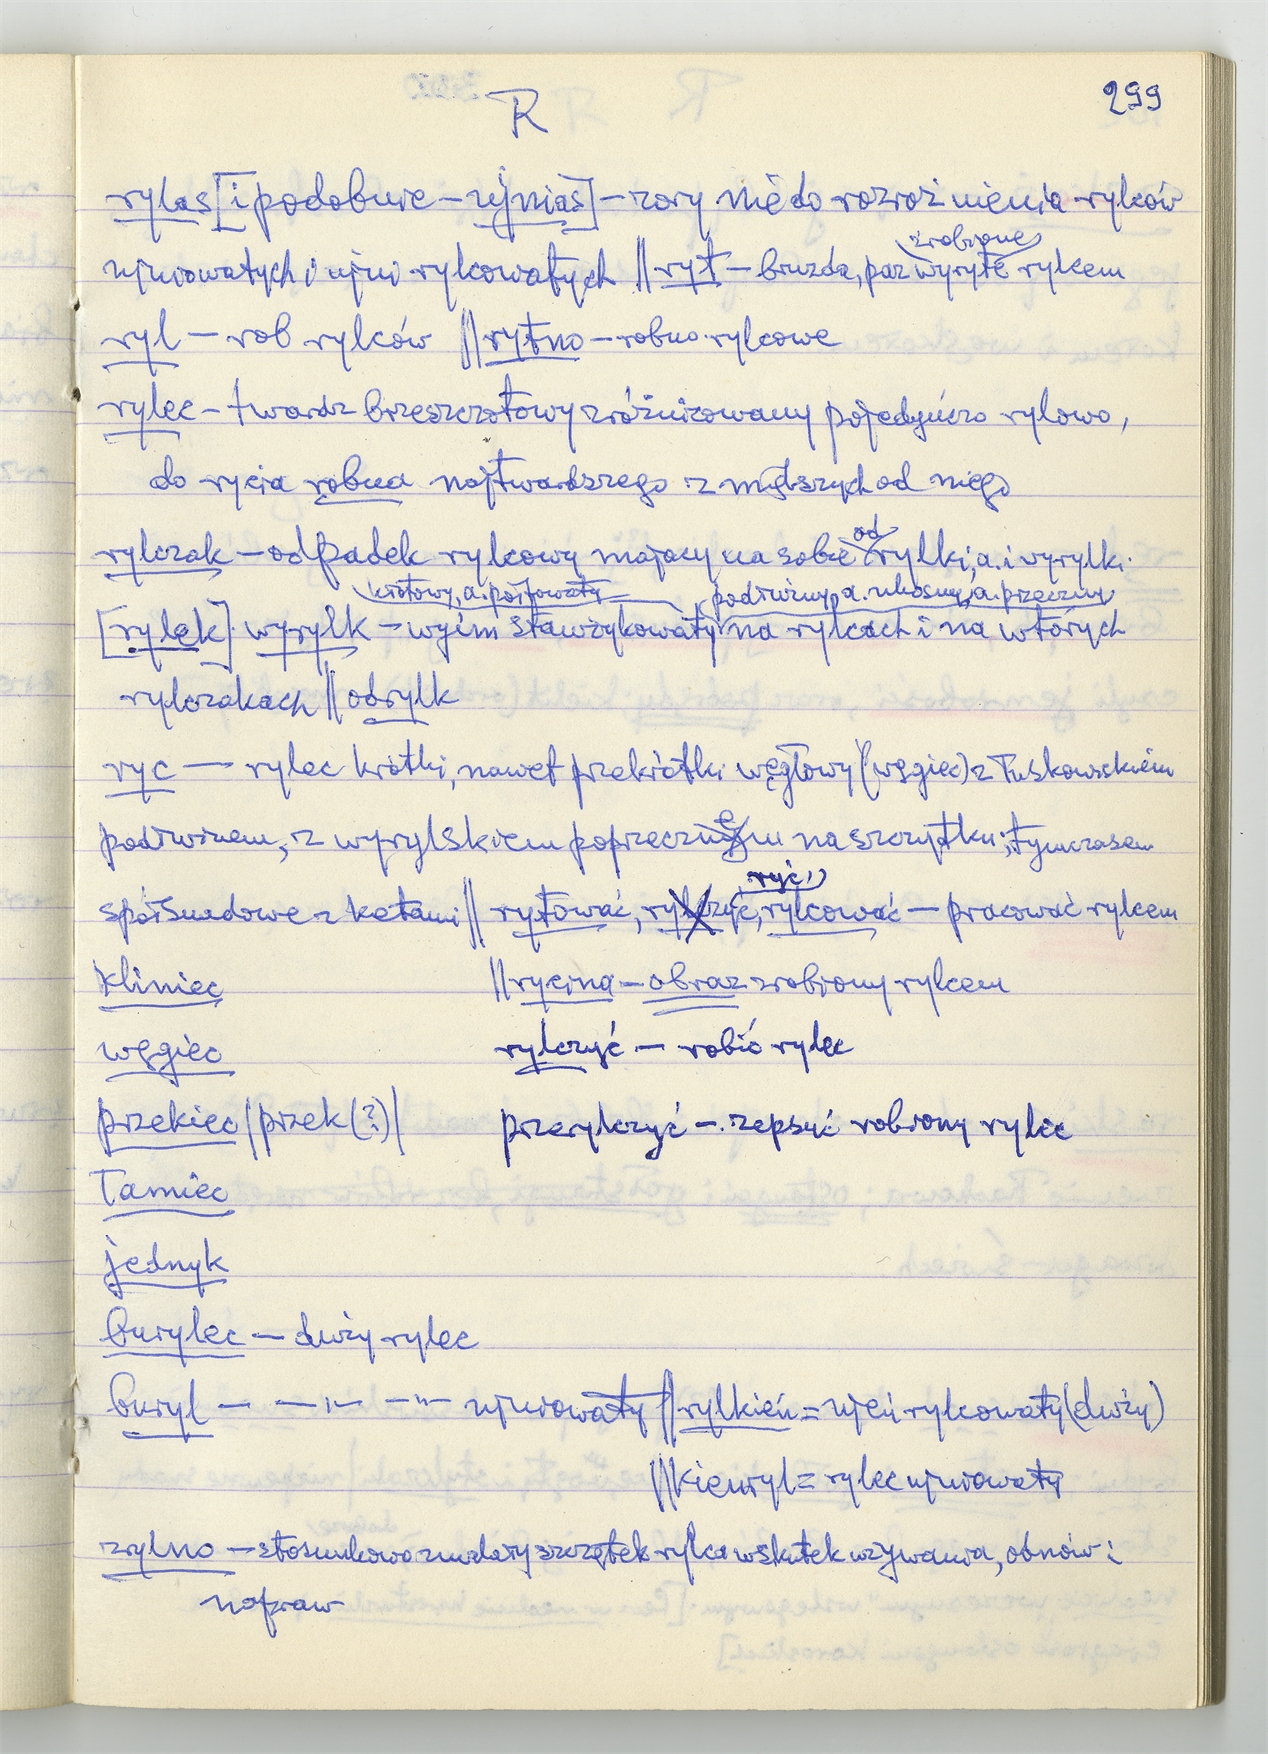 299
R
rylas [i podobnie – ujniaś] – zary nie do rozróżnienia rylców
zrobione
ujniowatych i ujni rylcowatych || ryt – bruzda, paz wyryte rylcem
ryl – rob rylców || rytno – robno rylcowe
rylec – twardz brzeszczotowy zróżnicowany pojedyńczo rylowo,
do rycia robna najtwardszego i z miększych od niego
od
rylczak – odpadek rylcowy mający na sobie rylki, a. i wyrylki.
podłużny, a. ukośny, a. przeczny
[rylek] wyrylk – wyim na rylcach i na wtórych
rylczakach || odrylk
ryc — rylec krótki, nawet przekrótki węgłowy (węgiec) z łuskowskiem
podłużnem, z wyrylskiem poprzecznem na szczytku; tymczasem
ryć,
spółśladowe z kątami || rytować, rylcować – pracować rylcem
kliniec || rycina – obraz zrobiony rylcem
węgiec rylczyć – robić rylec
przekiec | przek (?) | przerylczyć – zepsyć robiony rylec
łamiec
jednyk
burylec – duży rylec
buryl – –"– –"– ujniowaty || rylkień = ujeń rylcowaty (duży)
|| kienryl = rylec ujniowaty
zrylno – stosunkowo szczątek rylca wskutek używania, obnów i
napraw